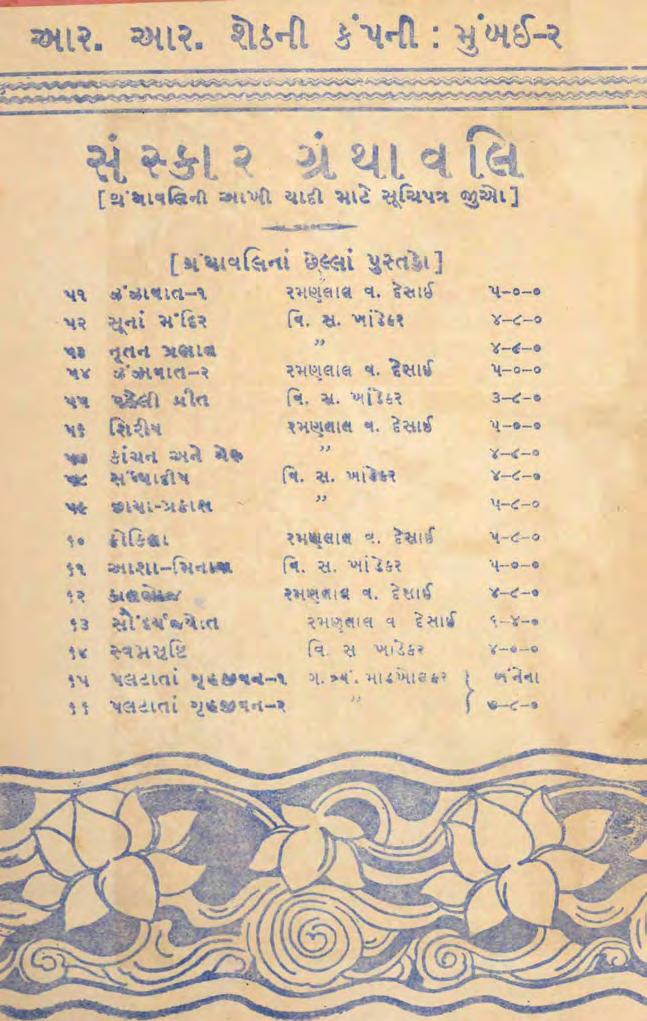 આર. આર. શેઠની કંપની : મુંબઈ-૨
સંસ્કાર ગ્રંથાવલિ
[ગ્રંથાવલિની આખી યાદી માટે સૂચિપત્ર જુઓ]
[ગ્રંથાવલિનાં છેલ્લાં પુસ્તકો]
૫૧ ઝંઝાવાત-૧ રમણલાલ વ. દેસાઈ ૫-૦-૦
૫૨ સૂનાં મંદિર વિ. સ. ખાંડેકર ૪-૮-૦
૫૩ નૂતન ” ૪-૮-૦
૫૪ ઝંઝાવાત-૨ રમણલાલ વ. દેસાઈ ૫-૦-૦
૫૫ પહેલી પ્રીત વિ. સ. ખાંડેકર ૩-૮-૦
૫૬ શિરીષ રમણલાલ વ. દેસાઈ ૫-૦-૦
૫૭ કાંચન અને ગેરુ ” ૪-૮-૦
૫૮ સંધ્યાદીપ વિ. સ. ખાંડેકર ૪-૮-૦
૫૯ છાયા-પ્રકાશ ” ૫-૮-૦
૬૦ કોકિલા રમણલાલ વ. દેસાઈ ૫-૮-૦
૬૧ આશા-મિનારા વિ. સ. ખાંડેકર ૫-૦-૦
૬૨ રમણલાલ વ. દેસાઈ ૪-૮-૦
૬૩ સૌંદર્યજ્યોત રમણલાલ વ દેસાઈ ૬-૪-૦
૬૪ સ્વપ્નસૃષ્ટિ વિ. સ ખાંડેકર ૪-૦-૦
૬૫ પલટાતાં ગૃહજીવન-૧ ગ. ત્ર્યં. માડખોલકર } બંનેના
૬૬ પલટાતાં ગૃહજીવન-૨ ” ૭-૮-૦